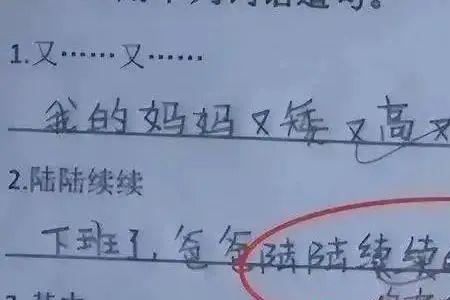 1.又……又……
我的妈妈又矮又高又
2.陆陆续续
下班了,爸爸陆陆续续